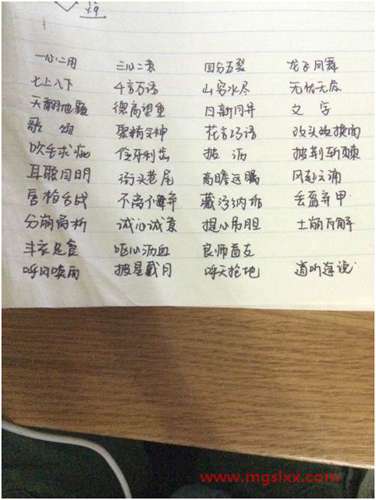 一心二用 三心二意 四分五裂 龙飞凤舞
七上八下 千言万语 山穷水尽 无忧无虑
天翻地覆 德高望重 日新月异 文字
歌颂 聚精会神 花言巧语 改头换面
吹毛求疵 伶牙利齿 披沥 披荆斩棘
耳聪目明 街头巷尾 高瞻远瞩 风起云涌
唇枪舌战 藏污纳垢 丢盔弃甲
分崩离析 诚心诚意 提心吊胆 土崩瓦解
丰衣足食 呕心沥血 良师益友
呼风唤雨 披星戴月 呼天抢地 道听途说
www.mgslxx.com